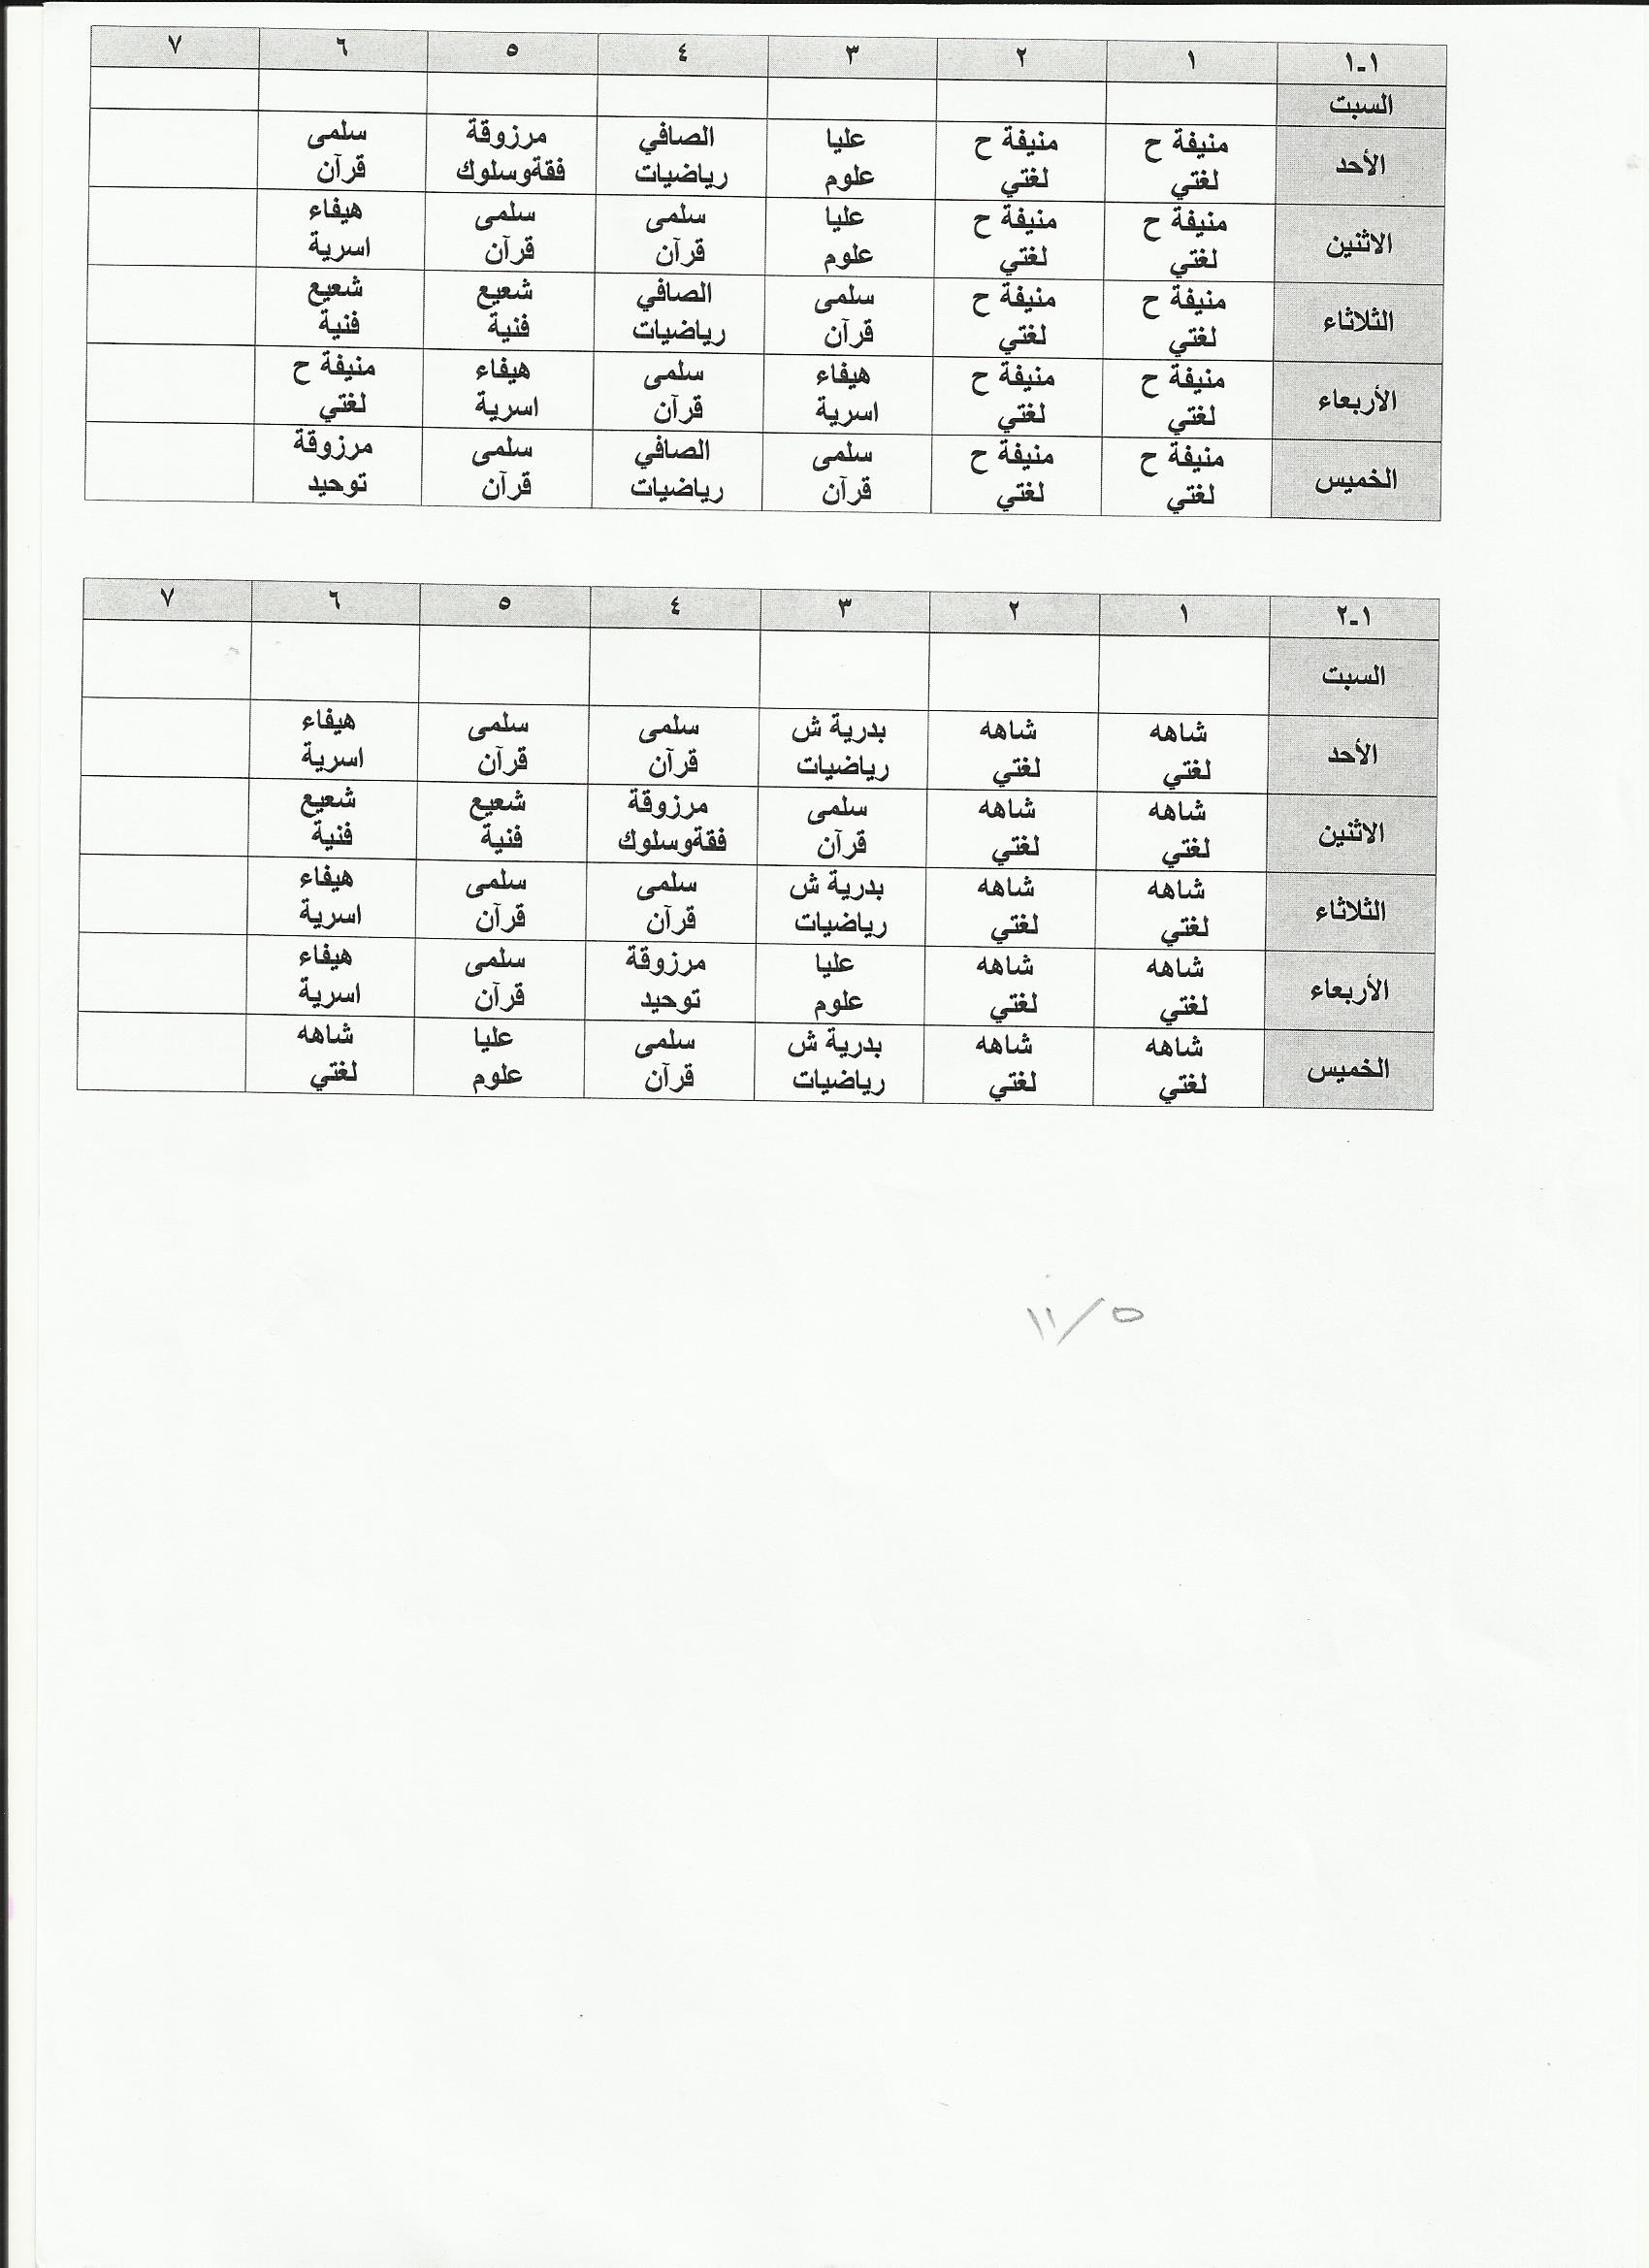 ١-١ ١ ٢ ٣ ٤ ٥ ٦ ٧
السبت
الأحد
منيفة ح منيفة ح عليا الصافي مرزوقة سلمى
لغتي لغتي علوم رياضيات فقةوسلوك قرآن
الاثنين
منيفة ح منيفة ح عليا سلمى سلمى هيفاء
لغتي لغتي علوم قرآن قرآن اسرية
الثلاثاء
منيفة ح منيفة ح سلمى الصافي شعيع شعيع
لغتي لغتي قرآن رياضيات فنية فنية
الأربعاء
منيفة ح منيفة ح هيفاء سلمى هيفاء منيفة ح
لغتي لغتي اسرية قرآن اسرية لغتي
الخميس
منيفة ح منيفة ح سلمى الصافي سلمى مرزوقة
لغتي لغتي قرآن رياضيات قرآن توحيد
١-٢ ١ ٢ ٣ ٤ ٥ ٦ ٧
السبت
الأحد
شاهه شاهه بدرية ش سلمى سلمى هيفاء
لغتي لغتي رياضيات قرآن قرآن اسرية
الاثنين
شاهه شاهه سلمى مرزوقة شعيع شعيع
لغتي لغتي قرآن فقةوسلوك فنية فنية
الثلاثاء
شاهه شاهه بدرية ش سلمى سلمى هيفاء
لغتي لغتي رياضيات قرآن قرآن اسرية
الأربعاء
شاهه شاهه عليا مرزوقة سلمى هيفاء
لغتي لغتي علوم توحيد قرآن اسرية
الخميس
شاهه شاهه بدرية ش سلمى عليا شاهه
لغتي لغتي رياضيات قرآن علوم لغتي
١١/٥